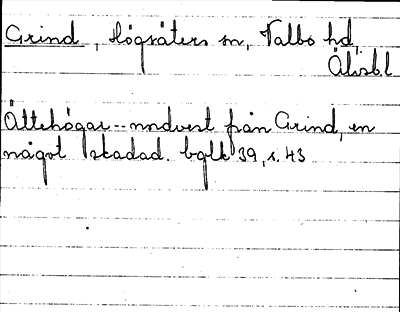 Grind, Högsäters sn, Valbo hd,
Älvsb.l
Ättehögar -- nordvest från Grind, en
något skadad. bglk 39, s. 43